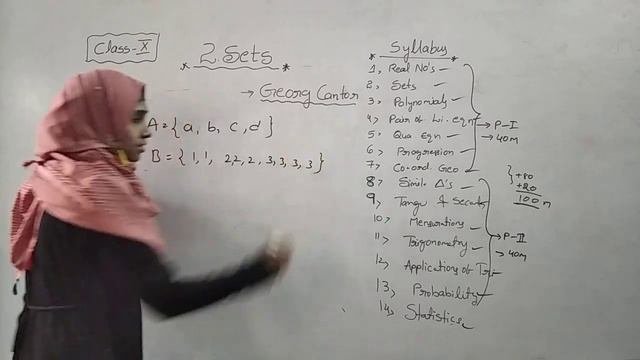 Class-X
* 2. Sets *
→ Georg Cantor
A = { a, b, c, d }
B = { 1, 1, 2, 2, 2, 3, 3, 3, 3 }
* Syllabus *
1, Real No's -
2, Sets -
3, Polynomials -
4, Pair of Li. eqn
5, Qua Eqn -
6, Progression -
7, Co-ord. Geo
→ P-I
→ 40M
8, Simil. Δ's -
9, Tange & Secants
10, Mensurations -
11, Trigonometry -
12, Applications of Tri
13, Probability -
14, Statistics
→ P-II
→ 40M
+80
+20
100 m